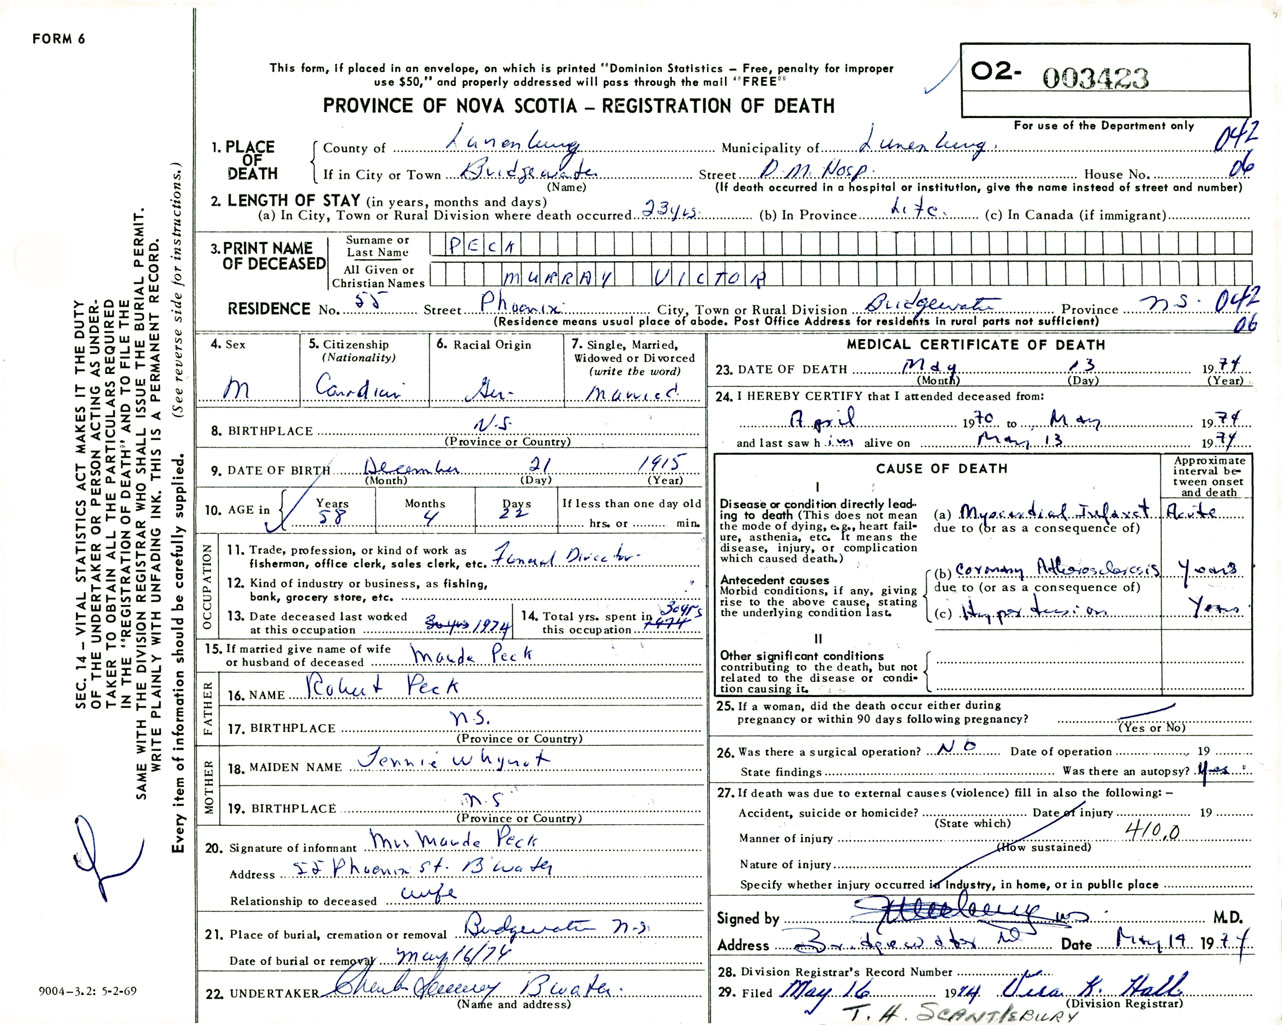 FORM 6
This form, if placed in an envelope, on which is printed "Dominion Statistics – Free, penalty for improper
use $50," and properly addressed will pass through the mail "FREE"
PROVINCE OF NOVA SCOTIA – REGISTRATION OF DEATH
O2- 003423
For use of the Department only
1. PLACE OF DEATH
County of Lunenburg Municipality of Lunenburg. 042
If in City or Town Bridgewater Street D.M. Hosp. House No. 06
(Name) (If death occurred in a hospital or institution, give the name instead of street and number)
2. LENGTH OF STAY (in years, months and days)
(a) In City, Town or Rural Division where death occurred 23 yrs. (b) In Province Life. (c) In Canada (if immigrant)
3. PRINT NAME OF DECEASED
Surname or Last Name PECK
All Given or Christian Names MURRAY VICTOR
RESIDENCE No. 55 Street Phoenix City, Town or Rural Division Bridgewater Province N.S. 042
(Residence means usual place of abode. Post Office Address for residents in rural parts not sufficient) 06
4. Sex M
5. Citizenship (Nationality) Canadian
6. Racial Origin Ger.
7. Single, Married, Widowed or Divorced (write the word) Married
8. BIRTHPLACE N.S.
(Province or Country)
9. DATE OF BIRTH December 21 1915
(Month) (Day) (Year)
10. AGE in Years 58 Months 4 Days 22 If less than one day old hrs. or min.
OCCUPATION
11. Trade, profession, or kind of work as
fisherman, office clerk, sales clerk, etc. Funeral Director
12. Kind of industry or business, as fishing,
bank, grocery store, etc.
13. Date deceased last worked
at this occupation 30 yrs 1974
14. Total yrs. spent in
this occupation 1974 30 yrs
15. If married give name of wife
or husband of deceased Maude Peck
FATHER
16. NAME Robert Peck
17. BIRTHPLACE N.S.
(Province or Country)
MOTHER
18. MAIDEN NAME Jennie Whynot
19. BIRTHPLACE N.S
(Province or Country)
20. Signature of informant Mrs Maude Peck
Address 55 Phoenix St. B'water
Relationship to deceased wife
21. Place of burial, cremation or removal Bridgewater N.S
Date of burial or removal May 16/74
22. UNDERTAKER B'water.
(Name and address)
MEDICAL CERTIFICATE OF DEATH
23. DATE OF DEATH May 13 1974
(Month) (Day) (Year)
24. I HEREBY CERTIFY that I attended deceased from:
April 1970 to May 1974
and last saw him alive on May 13 1974
CAUSE OF DEATH
Approximate interval between onset and death
I
Disease or condition directly leading to death (This does not mean the mode of dying, e.g., heart failure, asthenia, etc. It means the disease, injury, or complication which caused death.)
(a) Myocardial Infarct Acute
due to (or as a consequence of)
Antecedent causes
Morbid conditions, if any, giving rise to the above cause, stating the underlying condition last.
(b) Coronary Atherosclerosis Years
due to (or as a consequence of)
(c) Hypertension Years
II
Other significant conditions
contributing to the death, but not related to the disease or condition causing it.
25. If a woman, did the death occur either during
pregnancy or within 90 days following pregnancy?
(Yes or No)
26. Was there a surgical operation? NO Date of operation 19
State findings Was there an autopsy? Yes
27. If death was due to external causes (violence) fill in also the following: –
Accident, suicide or homicide? Date of injury 19
(State which)
Manner of injury 410.0
(How sustained)
Nature of injury
Specify whether injury occurred in industry, in home, or in public place
Signed by M.D.
Address Bridgewater Date May 14 1974
28. Division Registrar's Record Number
29. Filed May 16 1974 Vera K. Hall
(Division Registrar)
T. H. SCANTLEBURY
SEC. 14 – VITAL STATISTICS ACT MAKES IT THE DUTY
OF THE UNDERTAKER OR PERSON ACTING AS UNDER-
TAKER TO OBTAIN ALL THE PARTICULARS REQUIRED
IN THE "REGISTRATION OF DEATH" AND TO FILE THE
SAME WITH THE DIVISION REGISTRAR WHO SHALL ISSUE THE BURIAL PERMIT.
WRITE PLAINLY WITH UNFADING INK. THIS IS A PERMANENT RECORD.
Every item of information should be carefully supplied. (See reverse side for instructions.)
9004-3.2: 5-2-69